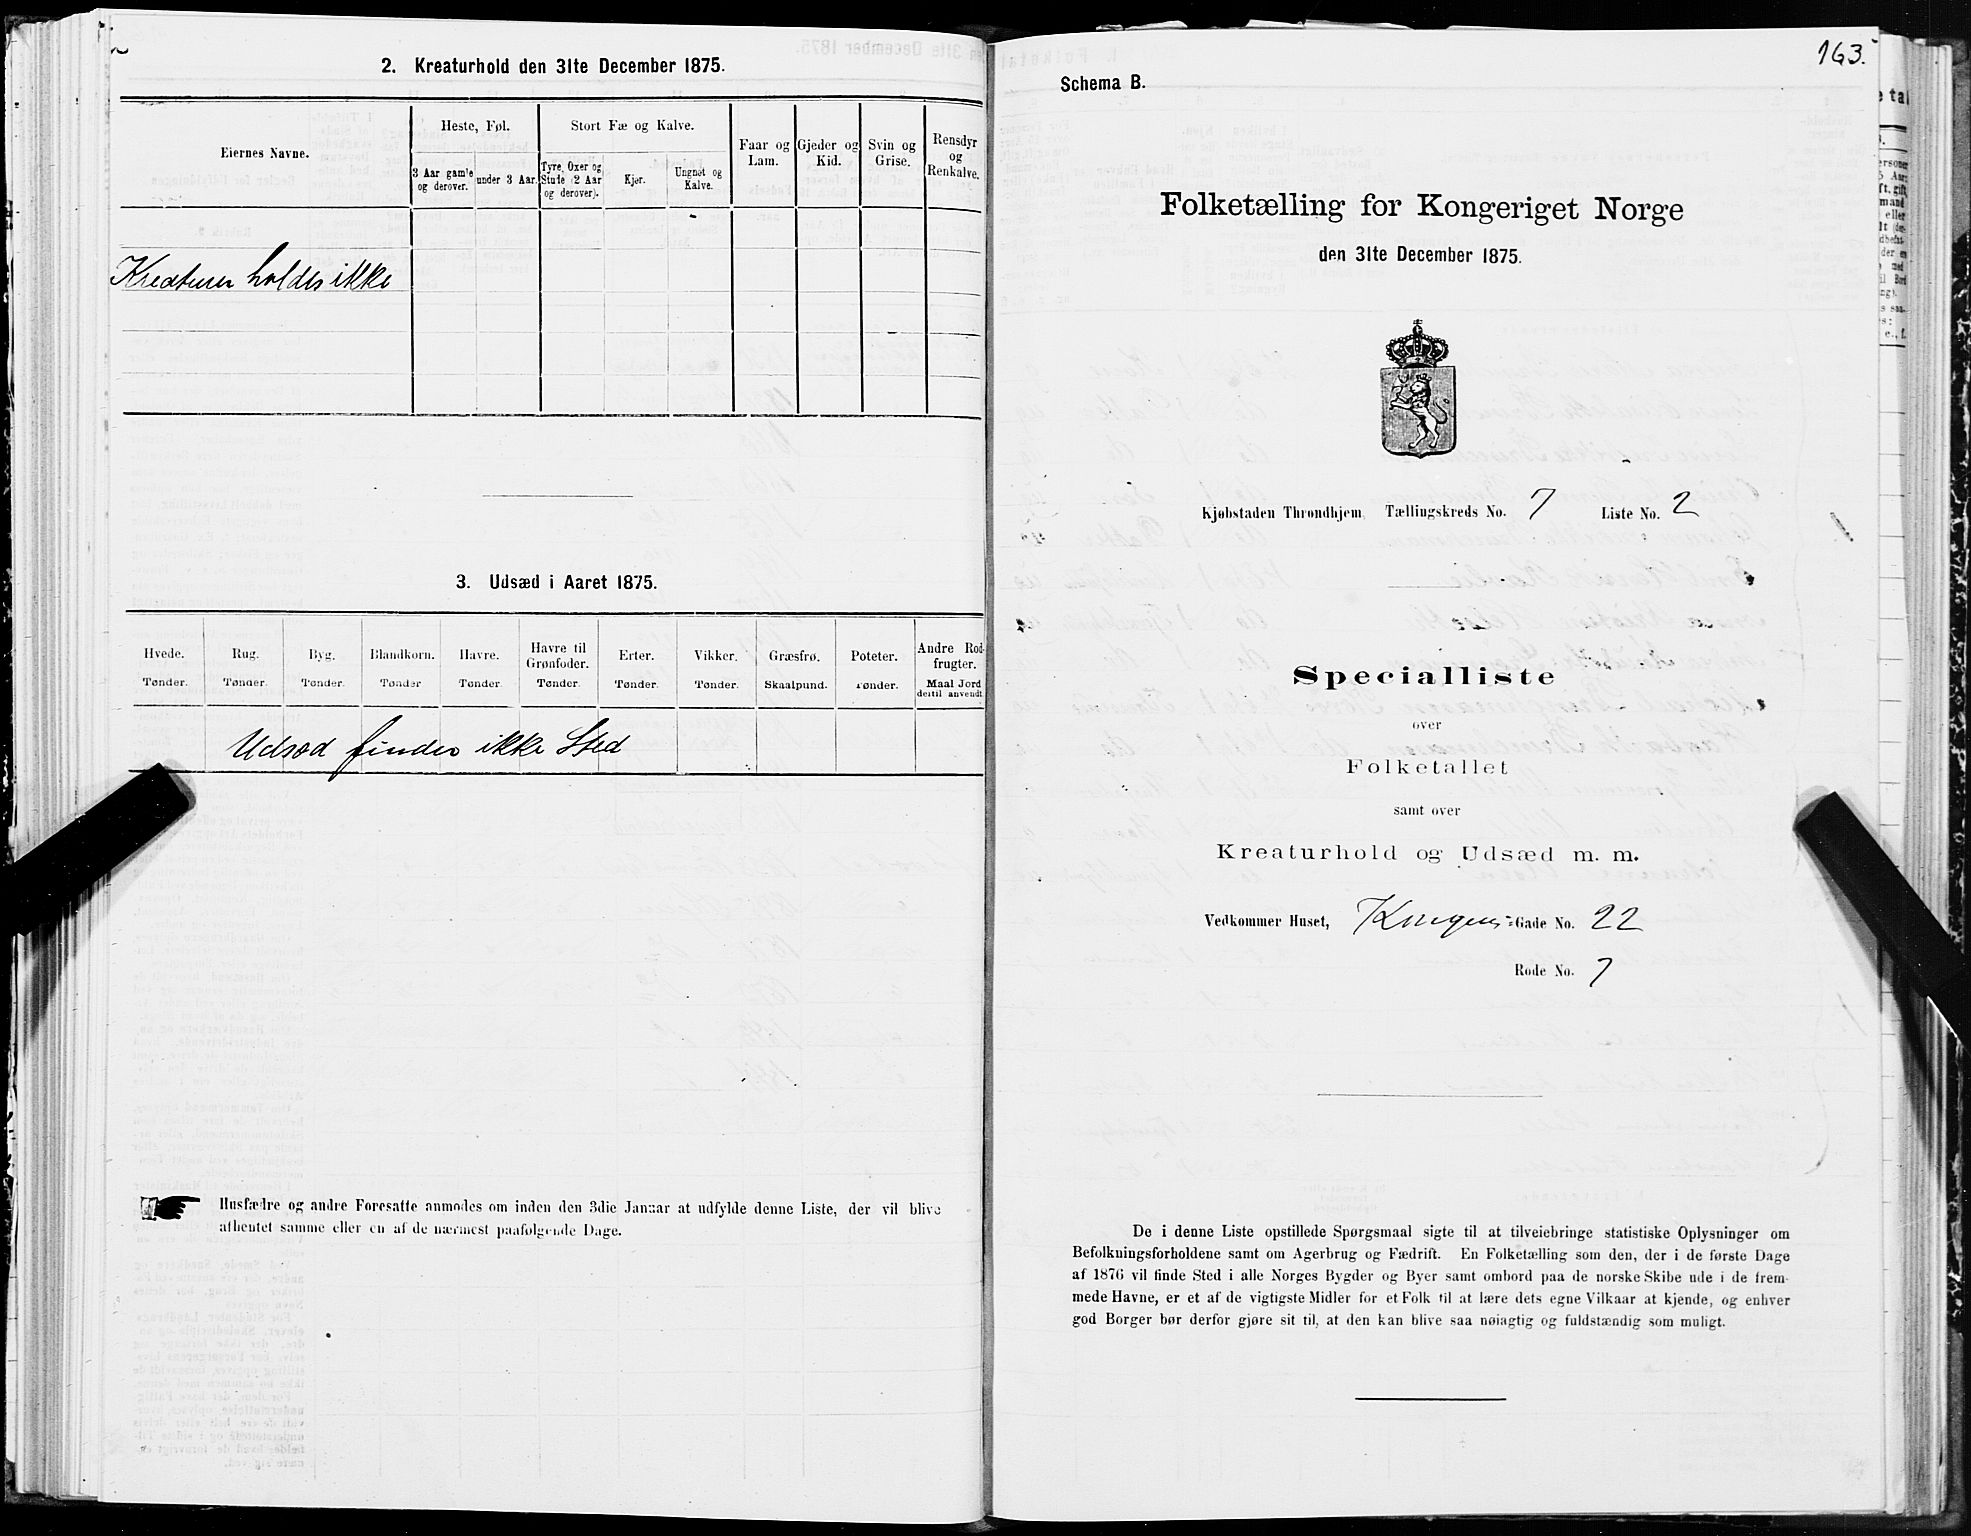 2. Kreaturhold den 31te December 1875.
Eiernes Navne.
Heste, Føl.
3 Aar gamle og derover.
under 3 Aar.
Stort Fæ og Kalve.
Tyre, Oxer og Stude (2 Aar og derover).
Kjør.
Ungnøt og Kalve.
Faar og Lam.
Gjeder og Kid.
Svin og Grise.
Rensdyr og Renkalve.
Kreaturer holdes ikke
3. Udsæd i Aaret 1875.
Hvede. Rug. Byg. Blandkorn. Havre. Havre til Grønfoder. Erter. Vikker. Græsfrø. Poteter. Andre Rodfrugter.
Tønder. Tønder. Tønder. Tønder Tønder. Tønder. Tønder. Tønder. Skaalpund. Tønder. Maal Jord dertil anvendt.
Udsæd finder ikke Sted
Husfædre og andre Foresatte anmodes om inden den 3die Januar at udfylde denne Liste, der vil blive
afhentet samme eller en af de nærmest paafølgende Dage.
163.
Schema B.
Folketælling for Kongeriget Norge
den 31te December 1875.
Kjøbstaden Throndhjem, Tællingskreds No. 7 Liste No. 2
Specialliste
over
Folketallet
samt over
Kreaturhold og Udsæd m. m.
Vedkommer Huset, Kongens-Gade No. 22
Rode No. 7
De i denne Liste opstillede Spørgsmaal sigte til at tilveiebringe statistiske Oplysninger om
Befolkningsforholdene samt om Agerbrug og Fædrift. En Folketælling som den, der i de første Dage
af 1876 vil finde Sted i alle Norges Bygder og Byer samt ombord paa de norske Skibe ude i de frem-
mede Havne, er et af de vigtigste Midler for et Folk til at lære dets egne Vilkaar at kjende, og enhver
god Borger bør derfor gjøre sit til, at den kan blive saa nøiagtig og fuldstændig som muligt.